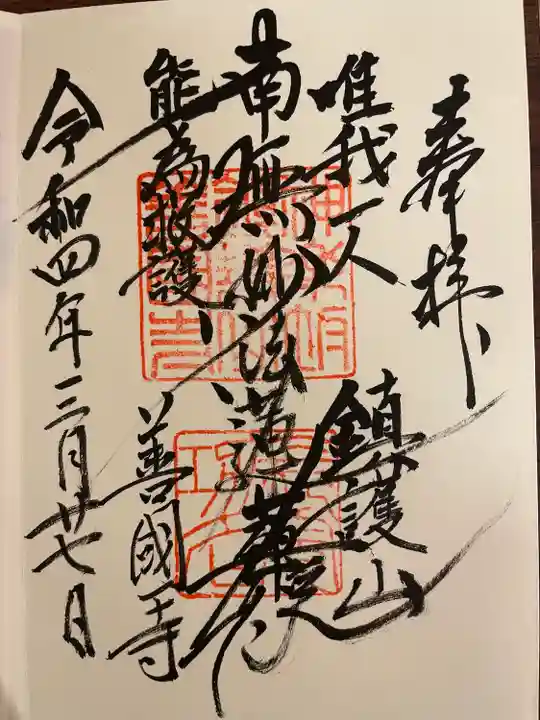 奉拝
唯我一人
鎮護山
南無妙法蓮華経
能為救護
善國寺
令和四年三月廿七日